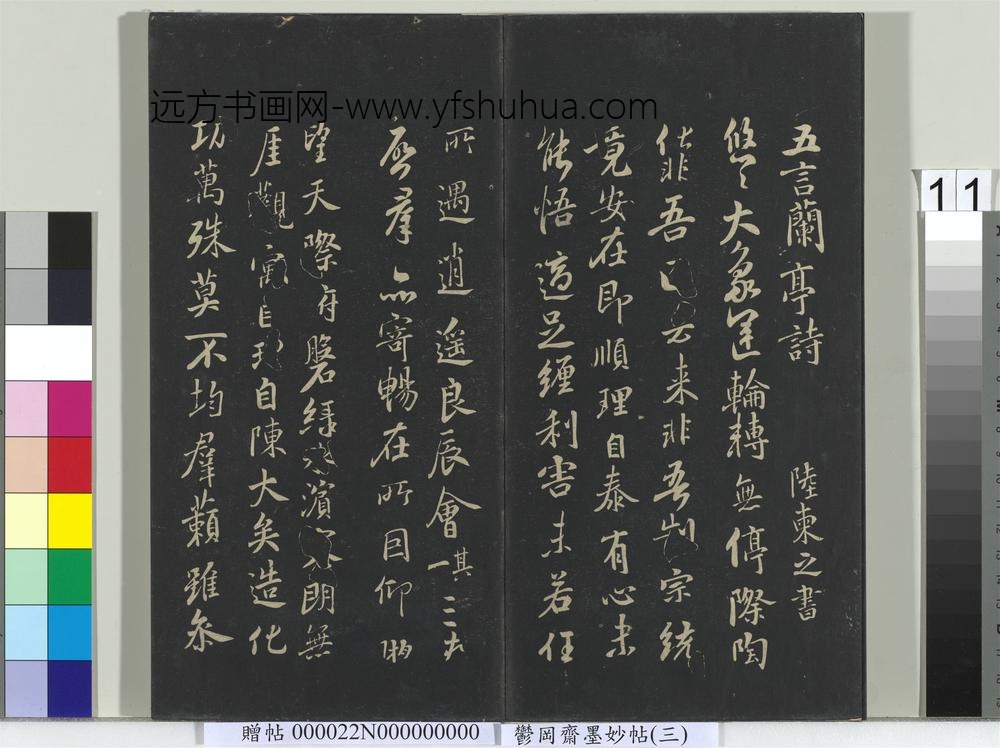 五言蘭亭詩 陸柬之書
悠〻大象運輪轉無停際陶
化非吾去来非吾制宗統
竟安在即順理自泰有心未
能悟適足纏利害未若任
所遇逍遥良辰會其一三春
啓羣品寄暢在所因仰眺
望天際俯磐綠水濱寥朗無
厓觀寓目理自陳大矣造化
功萬殊莫不均羣籟雖叅
远方书画网-www.yfshuhua.com
11
贈帖 000022N000000000
鬱岡齋墨妙帖(三)